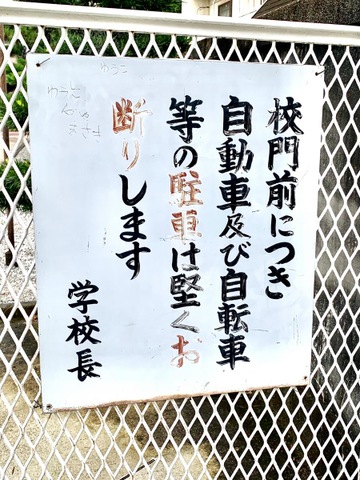 校門前につき
自動車及び自転車
等の駐車は堅くお
断りします
学校長
ゆうこ
ゆうと
まさき